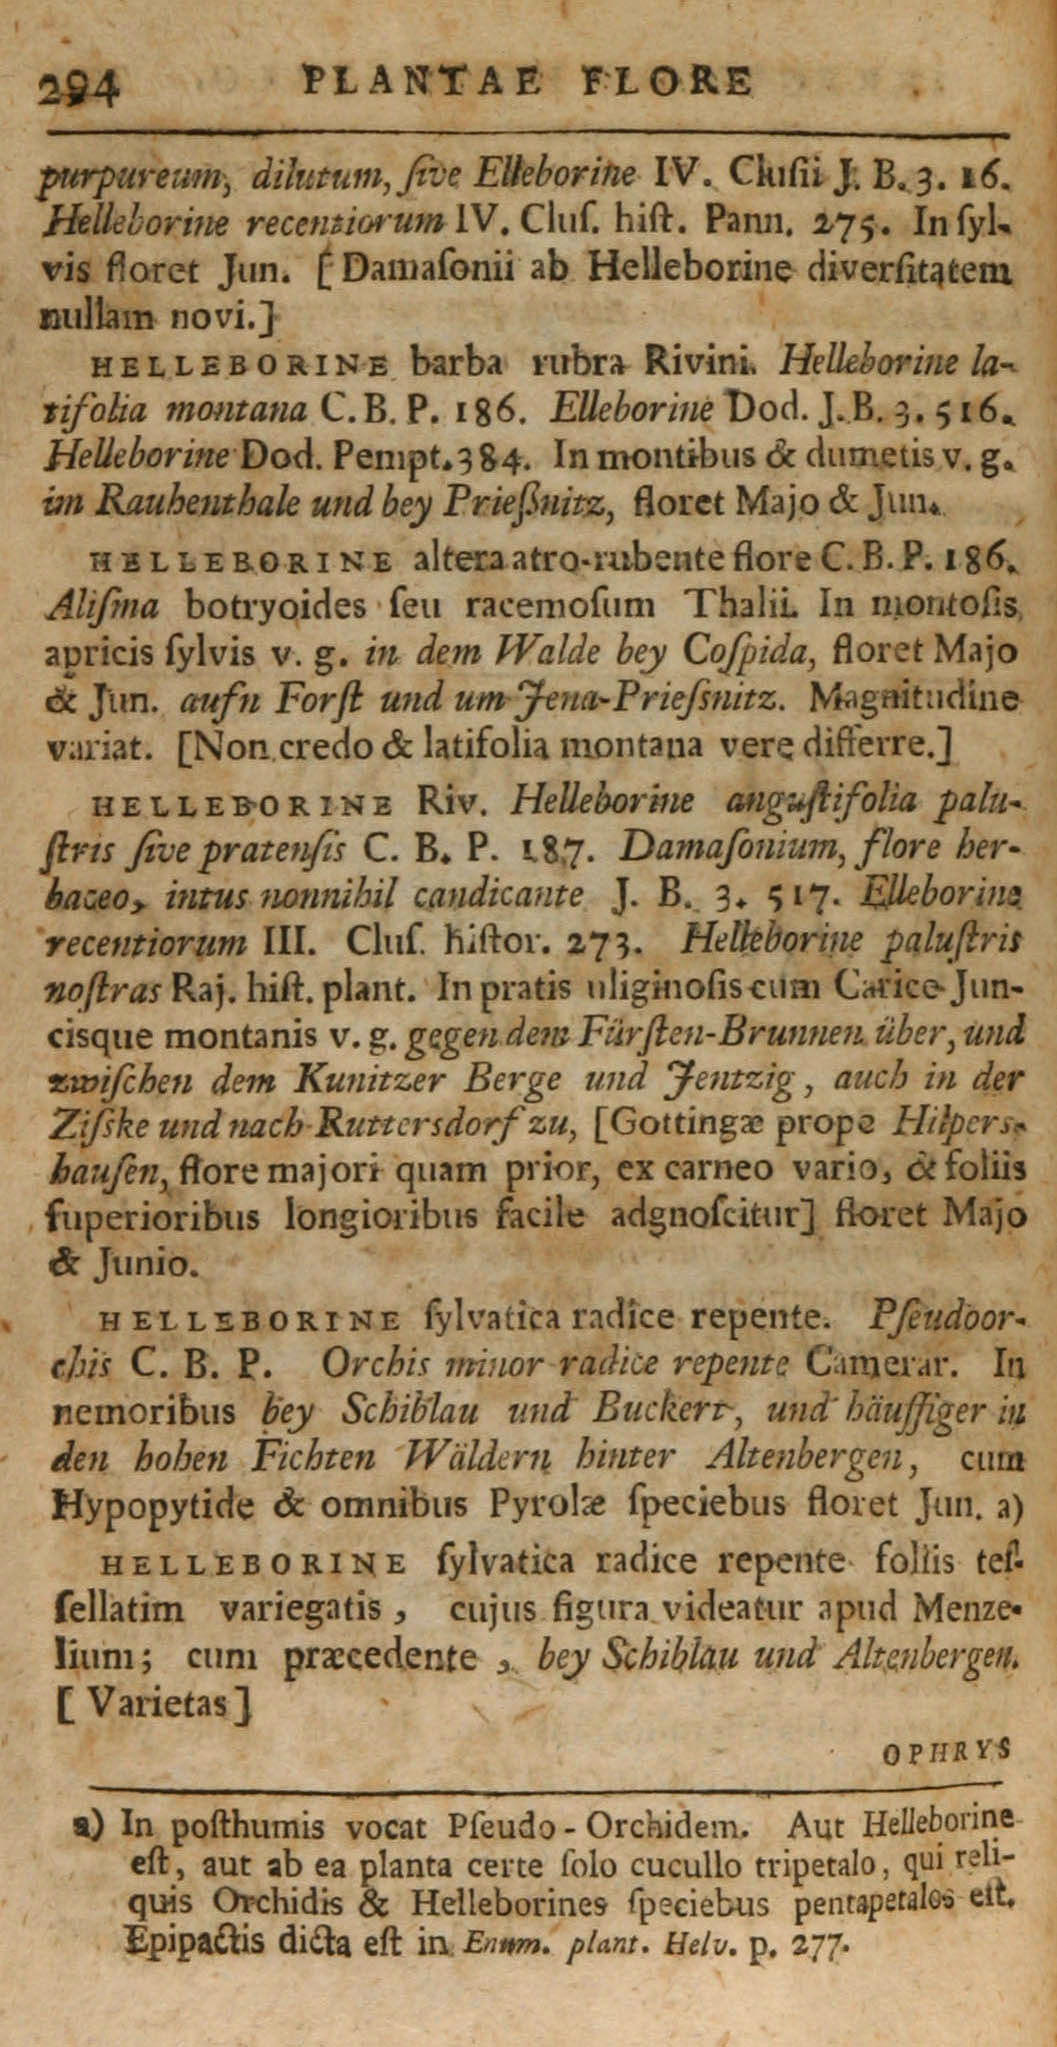 294 PLANTAE FLORE
purpureum, dilutum, ſive Elleborine IV. Cluſii J. B. 3. 16.
Helleborine recentiorum IV. Cluſ. hiſt. Pann. 275. In ſyl-
vis floret Jun. [Damaſonii ab Helleborine diverſitatem
nullam novi.]
HELLEBORINE barba rubra Rivini. Helleborine la-
tifolia montana C. B. P. 186. Elleborine Dod. J. B. 3. 516.
Helleborine Dod. Pempt. 384. In montibus & dumetis v. g.
im Rauhenthale und bey Prießnitz, floret Majo & Jun.
HELLEBORINE altera atro-rubente flore C. B. P. 186.
Aliſma botryoides ſeu racemoſum Thalii. In montoſis
apricis ſylvis v. g. in dem Walde bey Coſpida, floret Majo
& Jun. aufn Forſt und um Jena-Prieſsnitz. Magnitudine
variat. [Non credo & latifolia montana vere differre.]
HELLEBORINE Riv. Helleborine anguſtifolia palu-
ſtris ſive pratenſis C. B. P. 187. Damaſonium, flore her-
baceo, intus nonnihil candicante J. B. 3. 517. Elleborine
recentiorum III. Cluſ. hiſtor. 273. Helleborine paluſtris
noſtras Raj. hiſt. plant. In pratis uliginoſis cum Carice Jun-
cisque montanis v. g. gegen dem Fürſten-Brunnen über, und
zwiſchen dem Kunitzer Berge und Jentzig, auch in der
Ziſske und nach Ruttersdorf zu, [Gottingæ prope Hilpers-
hauſen, flore majori quam prior, ex carneo vario, & foliis
ſuperioribus longioribus facile adgnoſcitur] floret Majo
& Junio.
HELLEBORINE ſylvatica radice repente. Pſeudoor-
chis C. B. P. Orchis minor radice repente Camerar. In
nemoribus bey Schiblau und Buckert, und häuffiger in
den hohen Fichten Wäldern hinter Altenbergen, cum
Hypopytide & omnibus Pyrolæ ſpeciebus floret Jun. a)
HELLEBORINE ſylvatica radice repente foliis teſ-
ſellatim variegatis, cujus figura videatur apud Menze-
lium; cum præcedente, bey Schiblau und Altenbergen.
[Varietas]
OPHRYS
a) In poſthumis vocat Pſeudo-Orchidem. Aut Helleborine
eſt, aut ab ea planta certe ſolo cucullo tripetalo, qui reli-
quis Orchidis & Helleborines ſpeciebus pentapetalos eſt.
Epipactis dicta eſt in Enum. plant. Helv. p. 277.